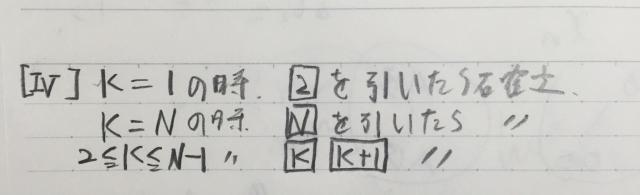 [IV] K=1の時. 2を引いたら石確定.
K=Nの時 Nを引いたら 〃
2≦K≦N-1 〃 K K+1 〃